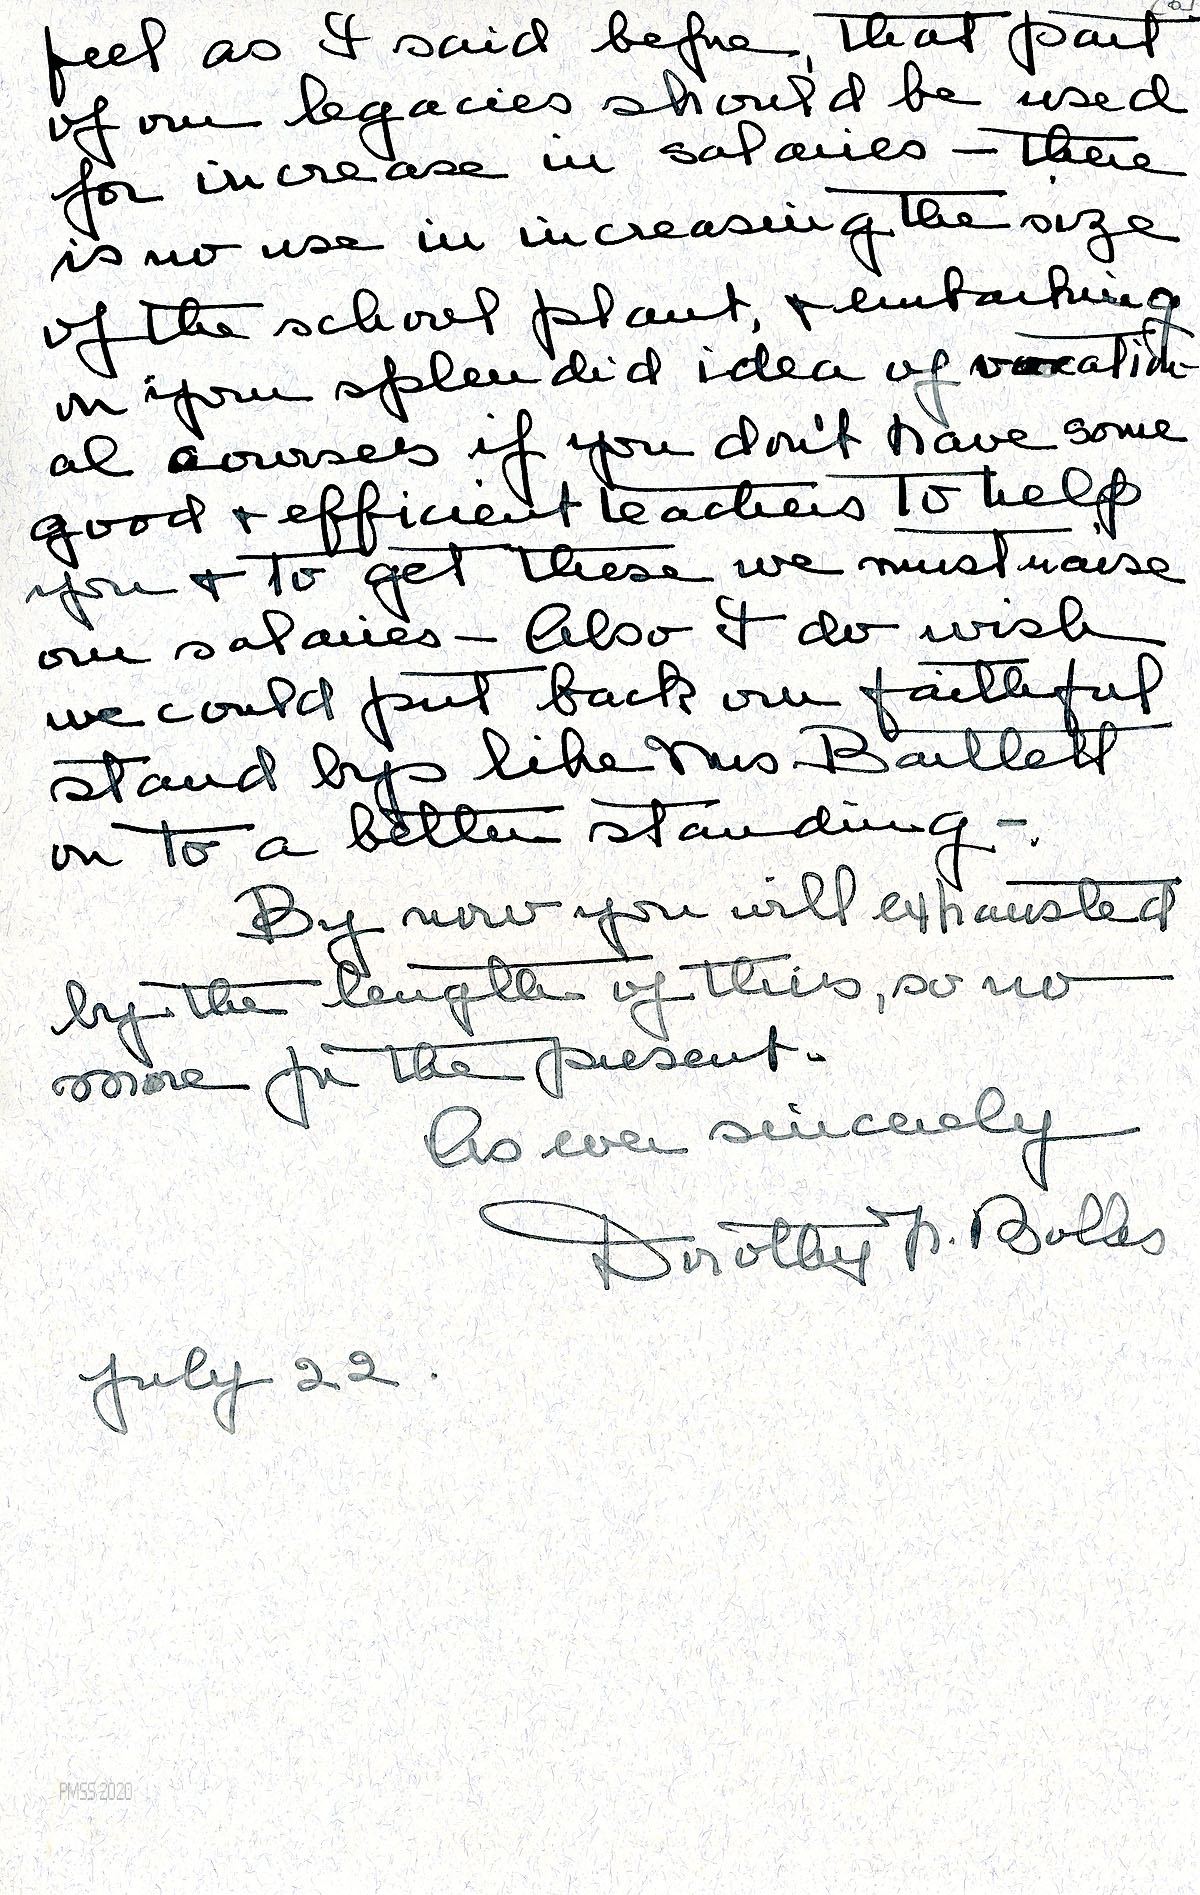 feel as I said before, that part
of our legacies should be used
for increase in salaries – there
is no use in increasing the size
of the school plant, & embarking
on your splendid idea of vocation-
al courses if you don't have some
good & efficient teachers to help
you & to get these we must raise
our salaries – Also I do wish
we could put back our faithful
stand bys like Mrs Bartlett
on to a better standing –.
By now you will exhausted
by the length of this, so no
more for the present.
As ever sincerely
Dorothy P. Bolles
July 22.
PMSS 2020